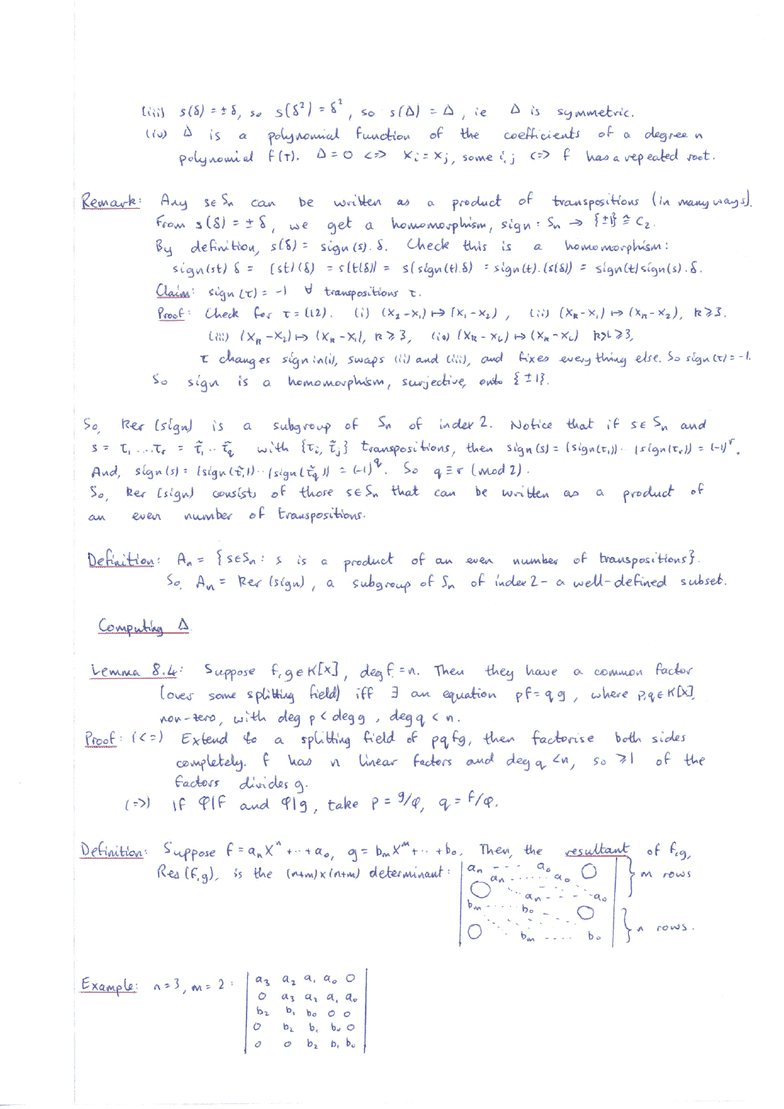 (iii) s(δ) = ±δ, so s(δ²) = δ², so s(Δ) = Δ, ie Δ is symmetric.
(iv) Δ is a polynomial function of the coefficients of a degree n
polynomial f(T). Δ=0 <=> xᵢ = xⱼ, some i,j <=> f has a repeated root.
Remark: Any s∈Sₙ can be written as a product of transpositions (in many ways).
From s(δ) = ±δ, we get a homomorphism, sign : Sₙ → {±1} ≅ C₂.
By definition, s(δ) = sign(s).δ. Check this is a homomorphism:
sign(st) δ = (st)(δ) = s(t(δ)) = s(sign(t).δ) = sign(t).(s(δ)) = sign(t)sign(s).δ.
Claim: sign(τ) = -1 ∀ transpositions τ.
Proof: Check for τ = (12). (i) (x₂-x₁) ↦ (x₁-x₂), (ii) (xₖ-x₁) ↦ (xₖ-x₂), k≥3.
(iii) (xₖ-x₂) ↦ (xₖ-x₁), k≥3, (iv) (xₖ-x_L) ↦ (xₖ-x_L) k>L≥3,
τ changes sign in (i), swaps (ii) and (iii), and fixes everything else. So sign(τ) = -1.
So sign is a homomorphism, surjective onto {±1}.
So, ker(sign) is a subgroup of Sₙ of index 2. Notice that if s∈Sₙ and
s = τ₁...τᵣ = τ̃₁..τ̃_q with {τᵢ, τ̃ⱼ} transpositions, then sign(s) = (sign(τ₁))..(sign(τᵣ)) = (-1)ʳ.
And, sign(s) = (sign(τ̃₁))..(sign(τ̃_q)) = (-1)^q. So q ≡ r (mod 2).
So, ker(sign) consists of those s∈Sₙ that can be written as a product of
an even number of transpositions.
Definition: Aₙ = {s∈Sₙ : s is a product of an even number of transpositions}.
So, Aₙ = ker(sign), a subgroup of Sₙ of index 2 - a well-defined subset.
Computing Δ
Lemma 8.4: Suppose f,g ∈ K[X], deg f = n. Then they have a common factor
(over some splitting field) iff ∃ an equation pf = qg, where p,q ∈ K[X],
non-zero, with deg p < deg g, deg q < n.
Proof: (<=) Extend to a splitting field of pqfg, then factorise both sides
completely. f has n linear factors and deg q < n, so ≥1 of the
factors divides g.
(=>) If φ|f and φ|g, take p = g/φ, q = f/φ.
Definition: Suppose f = aₙXⁿ + ··· + a₀, g = bₘXᵐ + ··· + b₀. Then, the resultant of f,g,
Res(f,g), is the (n+m)×(n+m) determinant:
aₙ - - - a₀ 0
aₙ ..... a₀ } m rows
0 aₙ - .... a₀
bₘ ..... b₀ 0
0 bₘ ..... b₀ } n rows.
Example: n=3, m=2:
a₃ a₂ a₁ a₀ 0
0 a₃ a₂ a₁ a₀
b₂ b₁ b₀ 0 0
0 b₂ b₁ b₀ 0
0 0 b₂ b₁ b₀